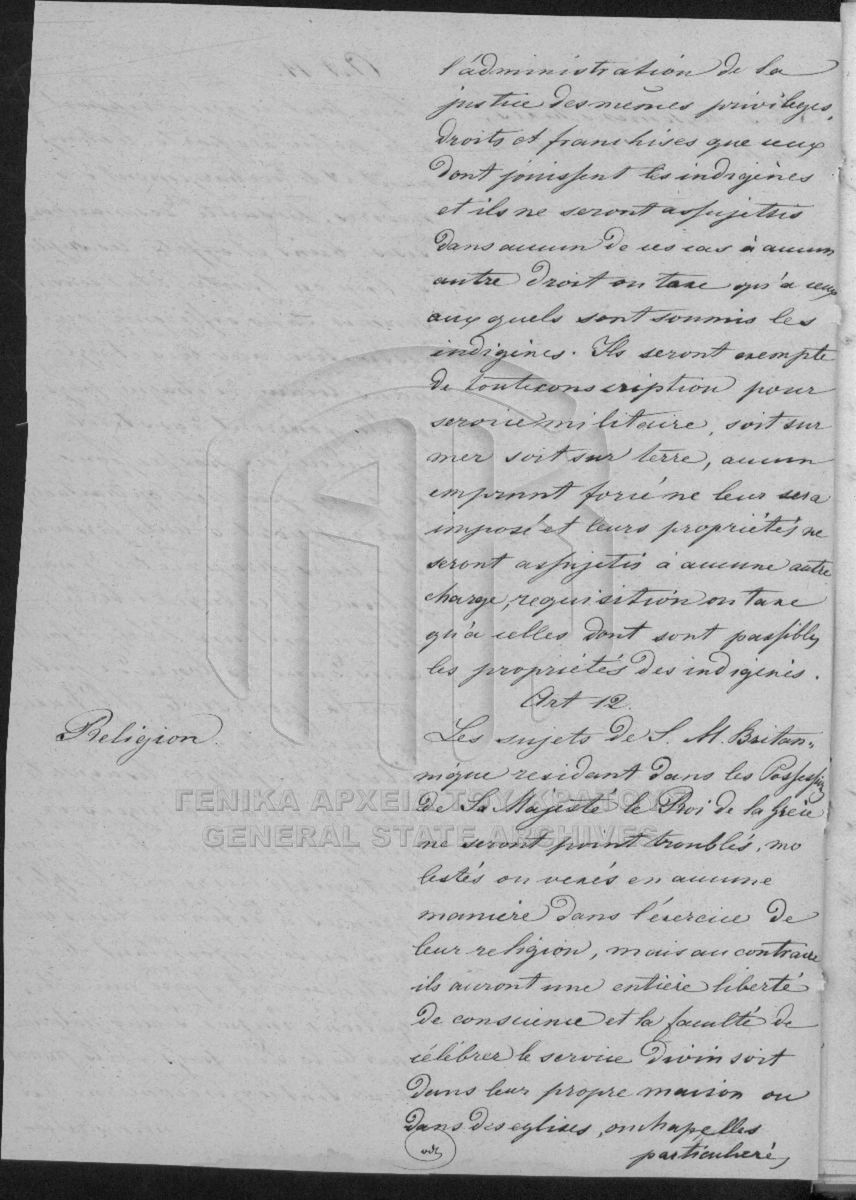 l'administration de la
justice des mêmes privileges,
droits et franchises que ceux
dont jouissent les indigènes
et ils ne seront assujettis
dans aucun de ces cas à aucun
autre droit ou taxe qu'à ceux
aux quels sont soumis les
indigènes. Ils seront exempte
de toute conscription pour
service militaire, soit sur
mer soit sur terre, aucun
emprunt forcé ne leur sera
imposé et leurs propriétés ne
seront assujetis à aucune autre
charge, requisition ou taxe
qu'à celles dont sont passibles
les propriétés des indigènes.
Art 12.
Religion.
Les sujets de S. M. Britan-
nique residant dans les
de Sa Majesté le Roi de la Grèce
ne seront point troublés, mo
lestés ou vexés en aucune
manière dans l'éxercice de
leur religion, mais au contraire
ils auront une entière liberté
de conscience et la faculté de
célébrer le service divin soit
dans leur propre maison ou
dans des eglises, ou chapelles
particulieres
ΓΕΝΙΚΑ ΑΡΧΕΙΑ ΤΟΥ ΚΡΑΤΟΥΣ
GENERAL STATE ARCHIVES